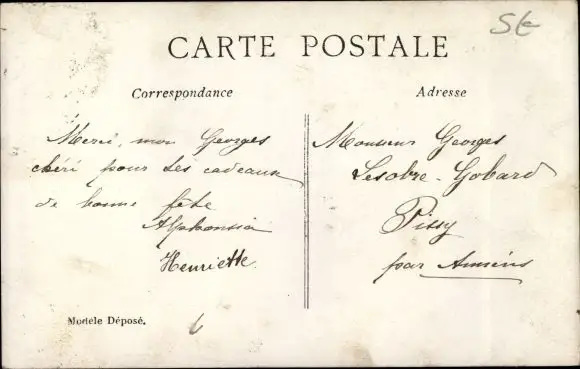 St
CARTE POSTALE
Correspondance
Merci, mon Georges
chéri pour tes cadeaux
de bonne fête
Alphonsia
Henriette.
Modèle Déposé.
6
Adresse
Monsieur Georges
Lesobre-Gobard
Pissy
par Amiens